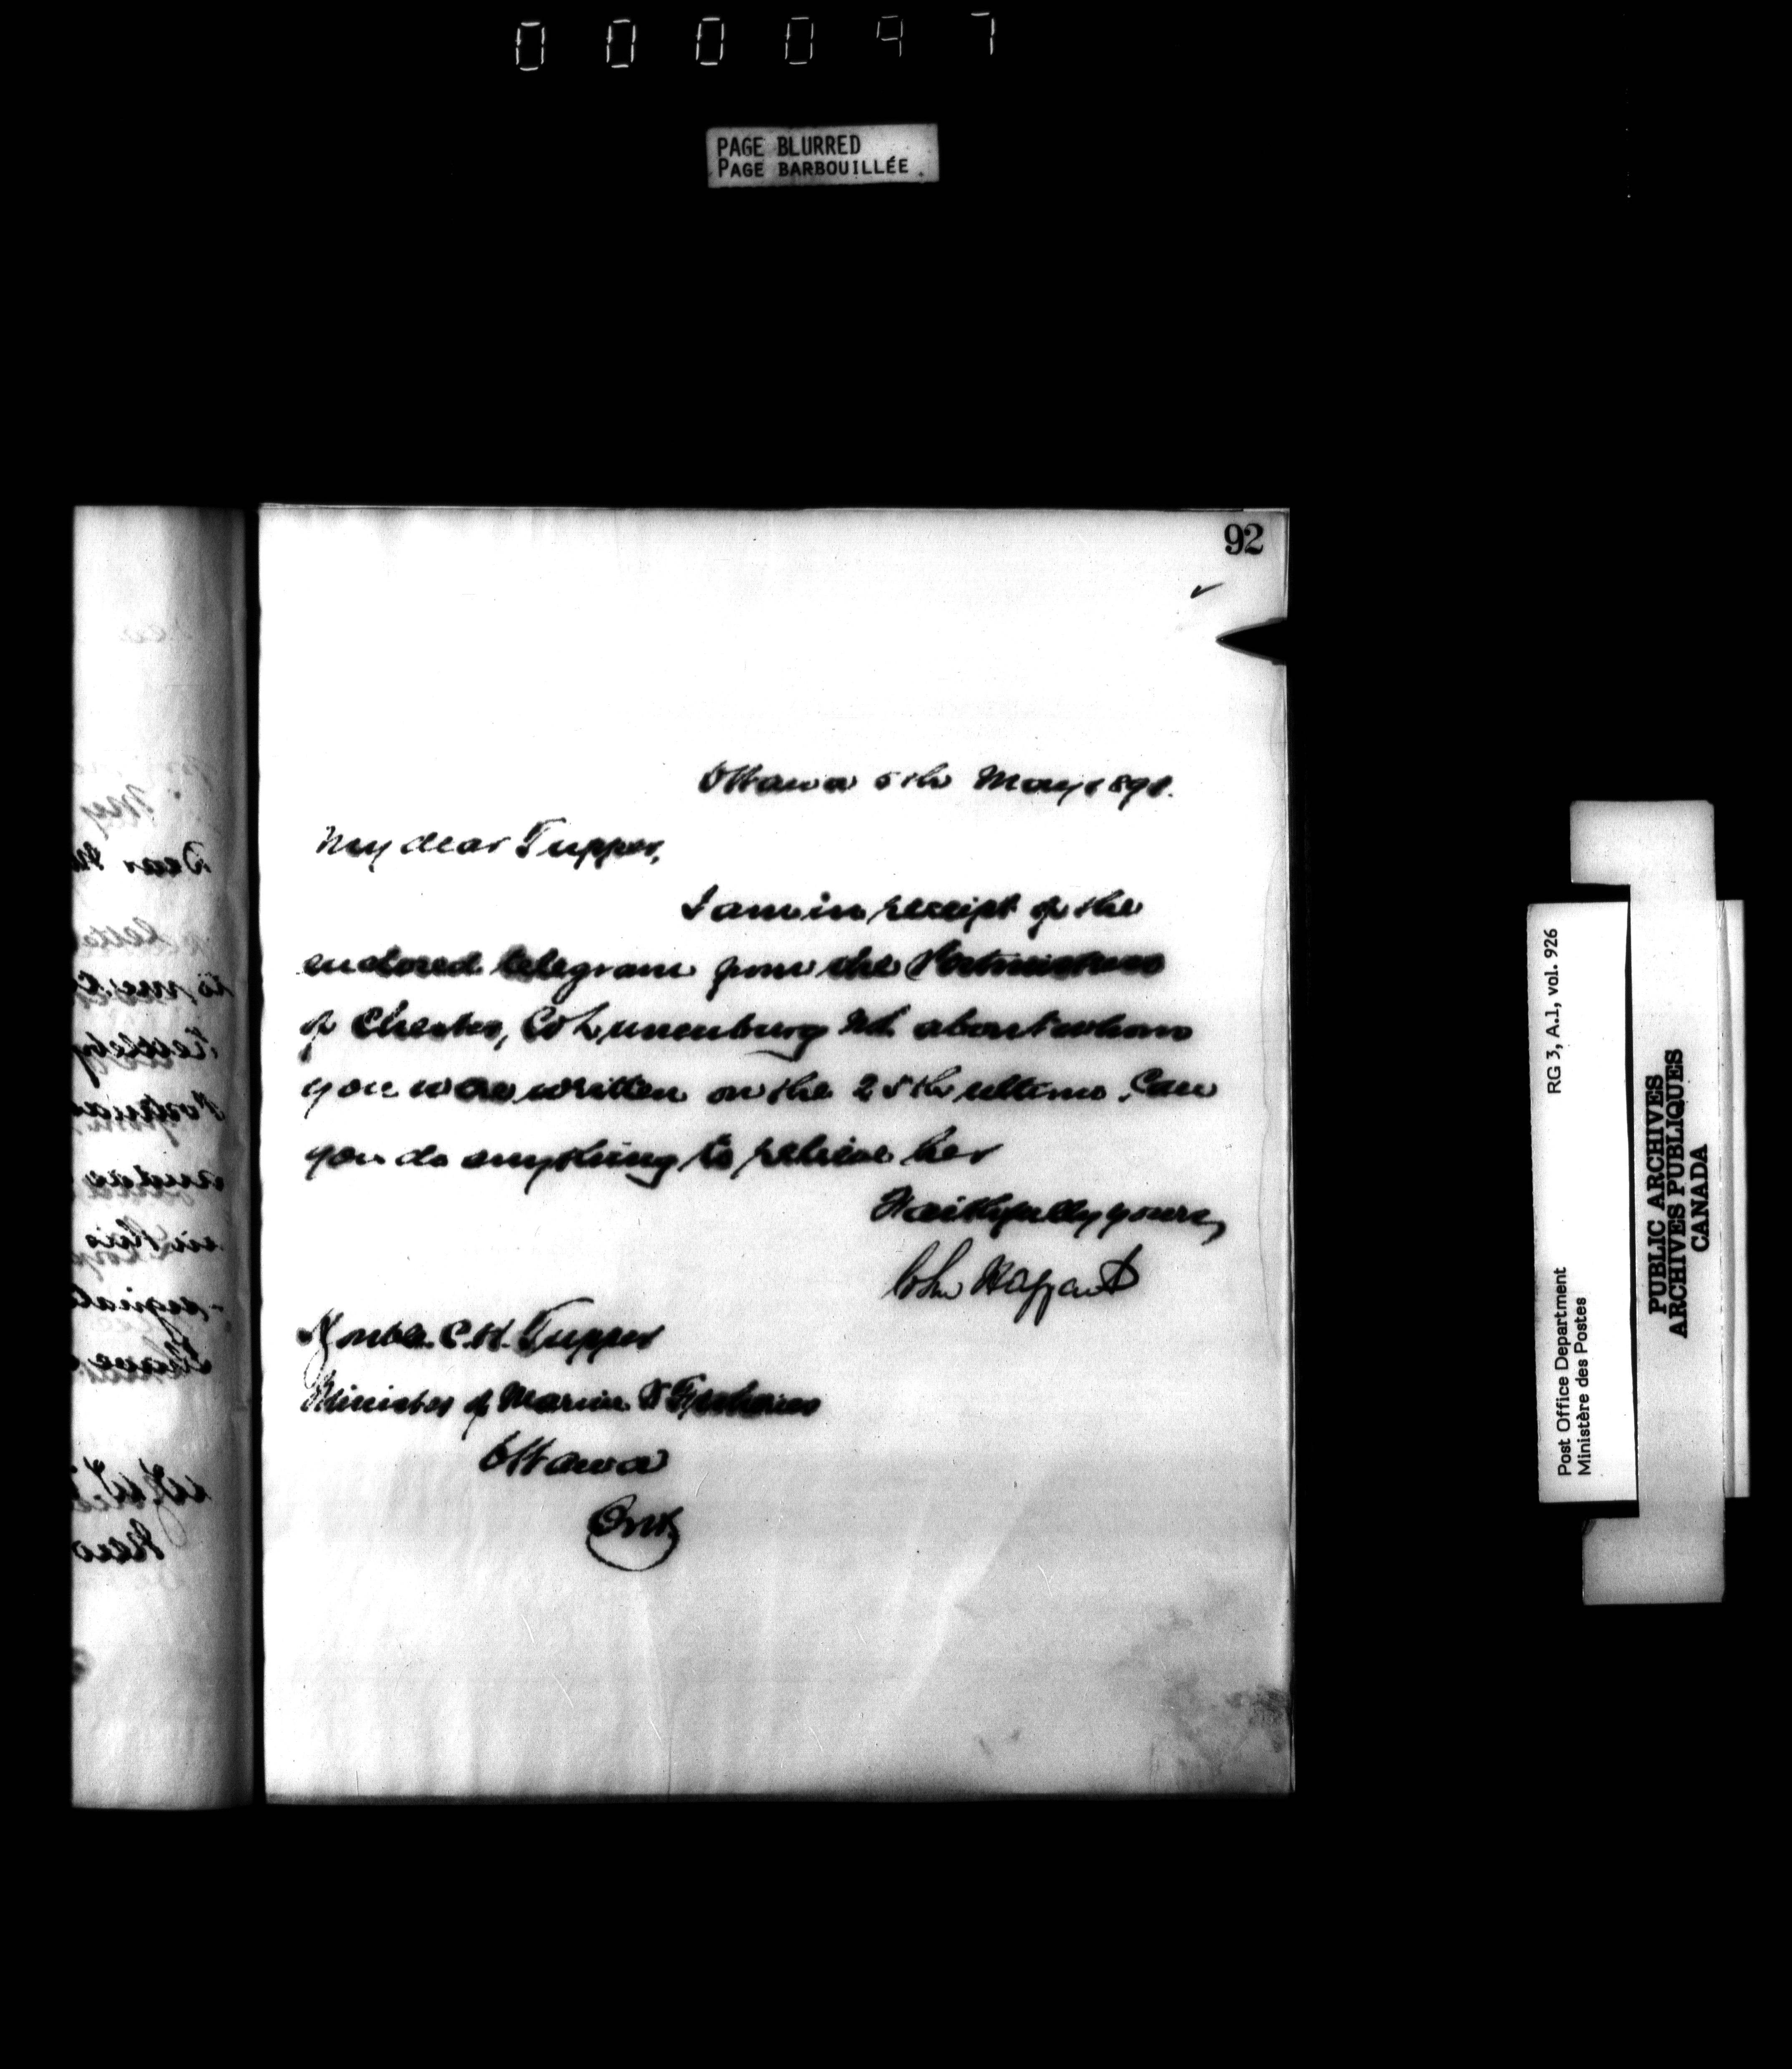 000097
PAGE BLURRED
PAGE BARBOUILLÉE
92
Ottawa 5th May 1891.
My dear Tupper,
I am in receipt of the
enclosed telegram from the Postmistress
of Chester, Co Lunenburg N.S. about whom
you were written on the 25th ultimo. Can
you do anything to relieve her
Faithfully yours,
John Haggart
Honble. C.H. Tupper
Minister of Marine & Fisheries
Ottawa
Ont.
RG 3, A.1, vol. 926
Post Office Department
Ministère des Postes
PUBLIC ARCHIVES
ARCHIVES PUBLIQUES
CANADA